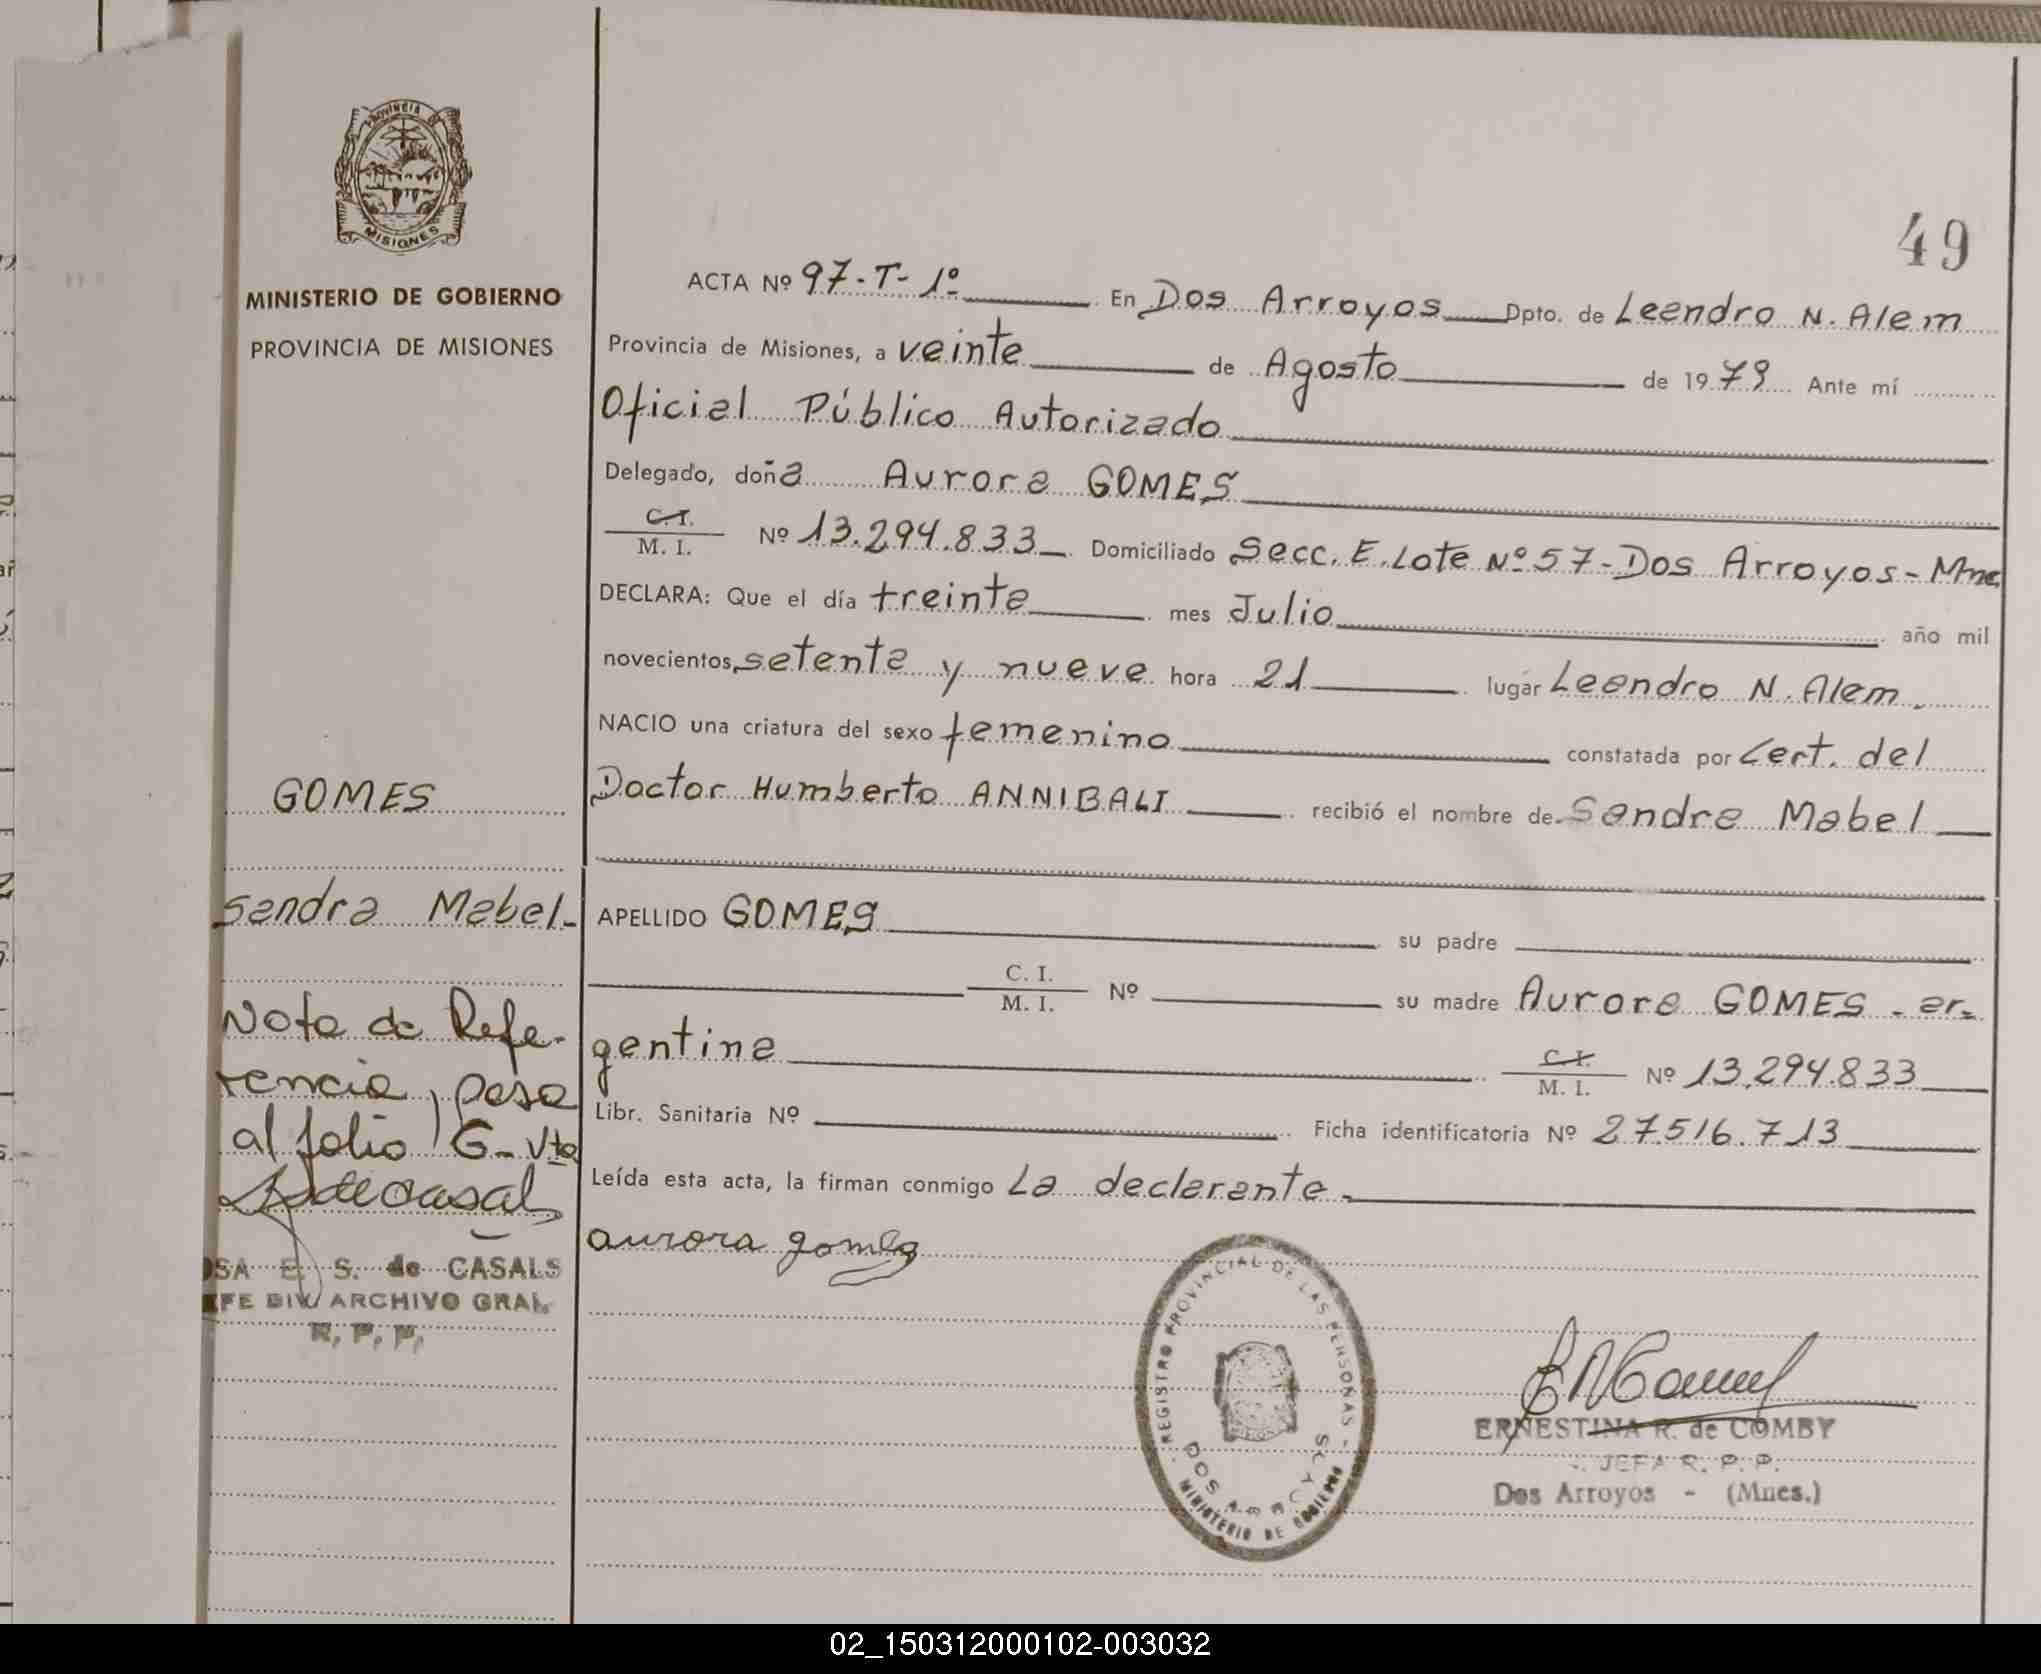 PROVINCIA DE
MISIONES
MINISTERIO DE GOBIERNO
PROVINCIA DE MISIONES
49
ACTA Nº 97-T-1º En Dos Arroyos Dpto. de Leandro N. Alem
Provincia de Misiones, a veinte de Agosto de 1979 Ante mí
Oficial Público Autorizado
Delegado, doña Aurora GOMES
C.I. / M. I. Nº 13.294.833 Domiciliado Secc. E. Lote Nº 57-Dos Arroyos-Mnes
DECLARA: Que el día treinta mes Julio año mil
novecientos setenta y nueve hora 21 lugar Leandro N. Alem.
NACIO una criatura del sexo femenino constatada por Cert. del
Doctor Humberto ANNIBALI recibió el nombre de Sandra Mabel
APELLIDO GOMES su padre
C. I. / M. I. Nº su madre Aurora GOMES - ar=
gentina C.I. / M. I. Nº 13.294.833
Libr. Sanitaria Nº Ficha identificatoria Nº 27.516.713
Leída esta acta, la firman conmigo La declarante.
aurora gomes
GOMES
Sandra Mabel.
Nota de Refe-
rencia, pasa
al folio G-Vta
OSA E. S. de CASALS
EFE DIV. ARCHIVO GRAL.
R. P. P.
REGISTRO PROVINCIAL DE LAS PERSONAS
DOS ARROYOS
MINISTERIO DE GOBIERNO
ERNESTINA R. de COMBY
JEFA R. P. P.
Dos Arroyos - (Mnes.)
02_150312000102-003032